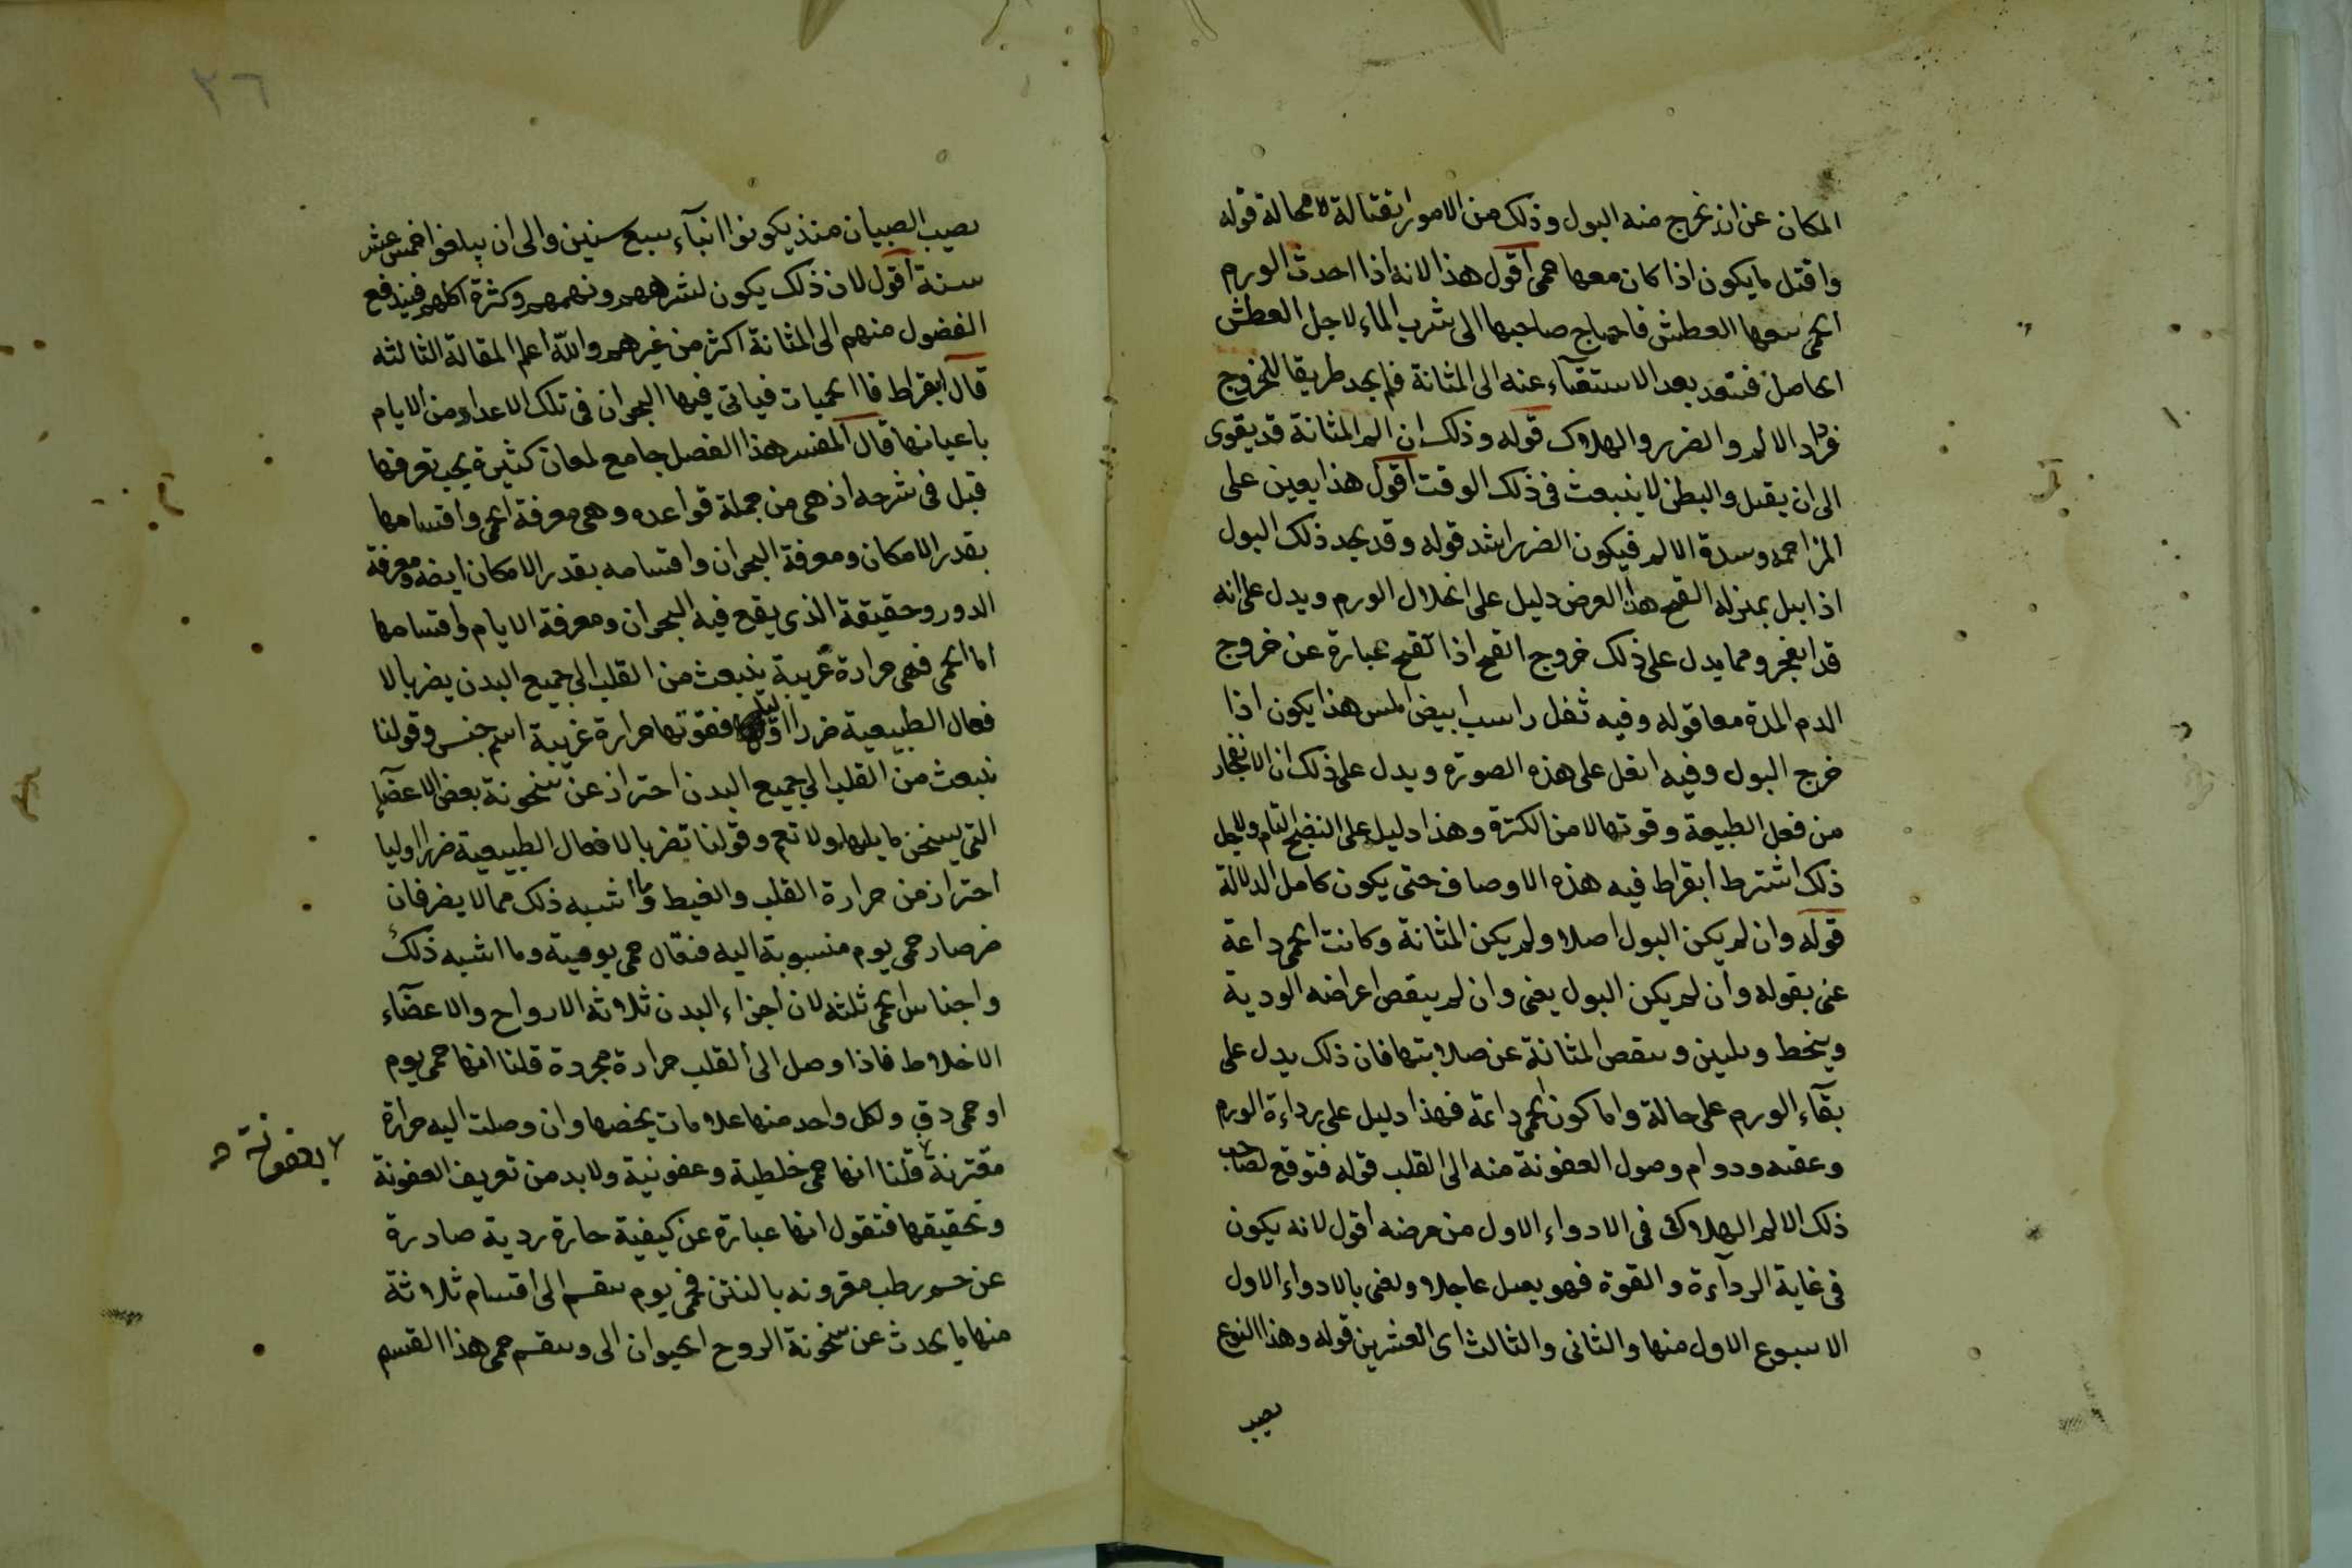 المكان عن ان تخرج منه البول وذلك من الامور القتالة لا محالة قوله
واقتل ما يكون اذا كان معها حمى اقول هذا لانه اذا احدث الورم
الحمى تبعها العطش فاحتاج صاحبها الى شرب الماء لاجل العطش
الحاصل فتنفد بعد الاستقاء عنه الى المثانة فلم يجد طريقا للخروج
فزاد الالم والضرر والهلاك قوله وذلك ان الم المثانة قد يقوى
الى ان يقتل والبطن لا ينبعث في ذلك الوقت اقول هذا يعين على
المزاحمه وشدة الالم فيكون الضرر اشد قوله وقد يحد ذلك البول
اذا ابيل بمنزله القيح هذا العرض دليل على انحلال الورم ويدل على انه
قد انفجر ومما يدل على ذلك خروج القيح اذا القيح عبارة عن خروج
الدم المدة معا قوله وفيه ثفل راسب ابيض املس هذا يكون اذا
خرج البول وفيه اثفل على هذه الصورة ويدل على ذلك ان الانفجار
من فعل الطبيعة وقوتها لا من الكثرة وهذا دليل على النضج التام ولاجل
ذلك اشترط ابقراط فيه هذه الاوصاف حتى يكون كامل الدلالة
قوله وان لم يكن البول اصلا ولم يكن المثانة وكانت الحمى داعة
عنى بقوله وان لم يكن البول يعنى وان لم ينقص اعراضه الردية
وينحط ويلين وينقص المثانة عن صلابتها فان ذلك يدل على
بقاء الورم على حالة واما كون الحمى دائمة فهذا دليل على رداءة الورم
وعفنه ودوام وصول العفونة منه الى القلب قوله فتوقع لصاحب
ذلك الالم الهلاك في الادواء الاول من مرضه اقول لانه يكون
في غاية الرداءة والقوة فهو يعمل عاجلا ونعنى بالادواء الاول
الاسبوع الاول منها والثاني والثالث اى العشرين قوله وهذا النوع
يصيب
٢٦
يصيب الصبيان منذ يكونوا ابناء سبع سنين والى ان يبلغوا خمس عشر
سنة اقول لان ذلك يكون لشرههم ونهمهم وكثرة اكلهم فيندفع
الفضول منهم الى المثانة اكثر من غيرهم والله اعلم المقالة الثالثه
قال ابقراط فاا لحميات فياتى فيها البحران في تلك الاعداد من الايام
باعيانها قال المفسر هذا الفصل جامع لمعان كثيرة يجب تعرفها
قبل في شرحه اذ هى من جملة قواعده وهى معرفة الحمى واقسامها
بقدر الامكان ومعرفة البحران واقسامه بقدر الامكان ايضه ومعرفة
الدور وحقيقة الذى يقع فيه البحران ومعرفة الايام واقسامها
اما الحمى فهى حرارة غريبة ينبعث من القلب الى جميع البدن يضر بالا
فعال الطبيعية ضررا اوليا فقوتها حرارة غريبة اسم جنس وقولنا
نبعث من القلب الى جميع البدن احتراز عن تسخونة بعض الاعضاء
التى يسخن ما يليها ولا تعم وقولنا تضر بالافعال الطبيعية ضررا اوليا
احتراز من حرارة القلب والغيط وما اشبه ذلك مما لا يضر فان
ضر صار حمى يوم منسوبة اليه فنقال حمى يومية وما اشبه ذلك
واجناس الحمى ثلثه لان اجزاء البدن ثلاثه الارواح والاعضاء
الاخلاط فاذا وصل الى القلب حرارة مجردة قلنا انها حمى يوم
او حمى دق ولكل واحد منها علامات يخصها وان وصلت اليه حرارة
مقترنة قلنا انها حمى خلطية وعفونية ولابد من تعريف العفونة
بعفونة
وتحقيقها فنقول انها عبارة عن كيفية حارة ردية صادرة
عن جسم رطب مقرونه بالنتن فحمى يوم ينقسم الى اقسام ثلاثة
منها ما يحدث عن سخونة الروح الحيوان الى وينقسم حمى هذا القسم